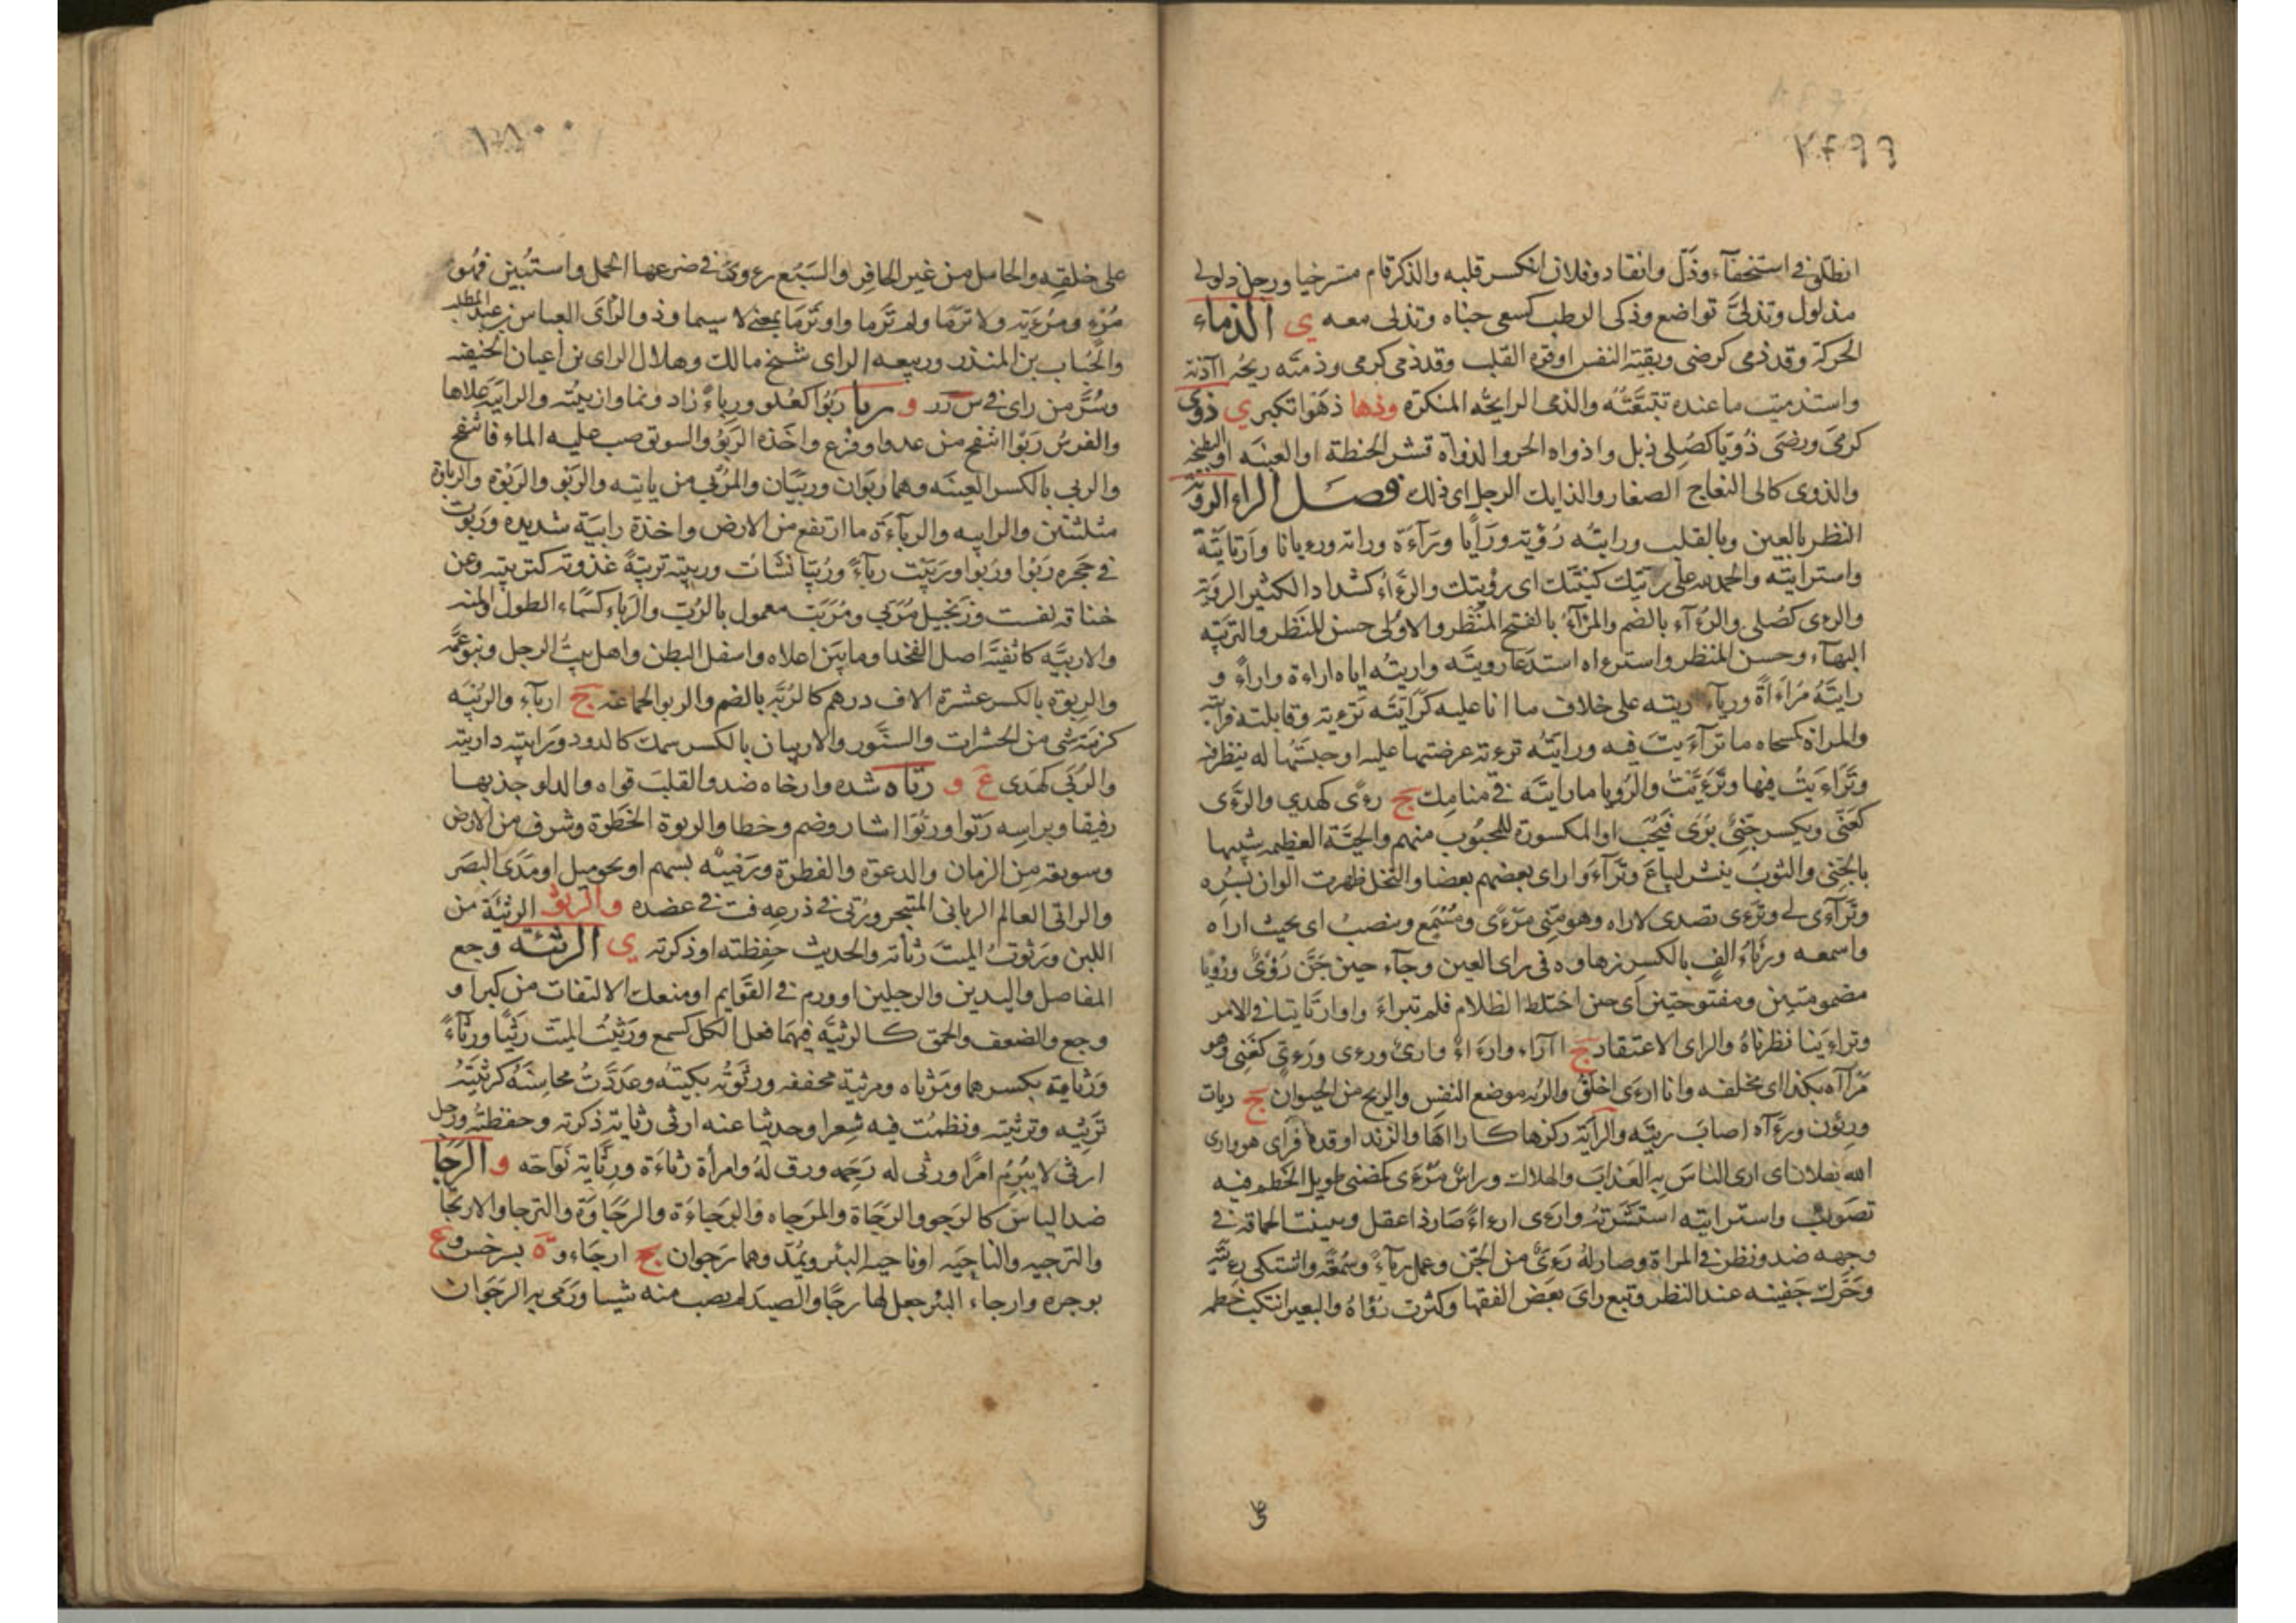 انطلق في استخفاء وذل وانقاد وفلان انكسر قلبه والذكر قام مسترخيا ورجل دلولي
مذلول وتذلى تواضع وذكى الرطب كسعى جناه وتذلى معه ي الذماء
الحركة وقد ذمى كرضى وبقية النفس او قوة القلب وقد ذمى كرمى وذمته ريحه اآذته
واستذميت ما عنده تتبعته والذمى الرايحه المنكرة وذها ذهوا تكبر ي ذوى
كرمى ورضى ذويا كصلى ذبل واذواه الحر والذواة قشر الحنطة او العنبه او البطيخه
والذوى كالى النعاج الصغار والذايك الرجل اى ذلك فصل الراء الروية
النظر بالعين وبالقلب ورايته رؤية ورأيا وراءة وراته ورءيانا وارتايته
واسترايته والحمد لله على ريتك كنيتك اى رؤيتك والرءاء كشداد الكثير الروية
والرءى كصلى والرءآء بالضم والمرآة بالفتح المنظر والاولى حسن المنظر والترئيه
البهاء وحسن المنظر واسترءاه استدعا رويته واريته اياه اراءة واراء و
رايته مراءاة ورياء ريته على خلاف ما انا عليه كرايته ترءية وقابلته فرايته
والمراة كسحاه ما ترآءيت فيه ورايته ترءية عرضتها عليه او حبستها له ينظر فيه
وتراءيت فيها وترءيت والرويا ما رايته في منامك ج رءى كهدى والرءى
كغنى ويكسر جنى يرى فيحب او المكسورة للمحبوب منهم والحية العظيمه شبها
بالجنى والثوب ينشر ليباع وترآءوا راى بعضهم بعضا والنخل ظهرت الوان بسره
وترآءى لى وترءى تصدى لاراه وهو منى مرءى ومسمع وينصب اى بحيث اراه
واسمعه ورئاء الف بالكسر زهاوه في راى العين وجاء حين جن رؤى ورؤيا
مضمومتين ومفتوحتين اى حين اختلط الظلام فلم يتراء واوارتاينا في الامر
وتراءينا نظرناه والراى الاعتقاد ج اآراء واراء وارى ورءى ورءى كغنى وهو
مرآاه بكذا اى مخلقه وانا ارءى اخلق والريه موضع النفس والريح من الحيوان ج ريات
ورئون ورءآه اصاب ريته والراية ركزها كاراها والزند اوقدها فراى هو وارى
الله بفلان اى ارى الناس به العذاب والهلاك وراس مرءى كمضنى طويل الخطم فيه
تصويب واسترايته استشرته وارءى ارءاء صار ذا عقل وبينت الحماقة في
وجهه ضد ونظر في المراة وصار له رءى من الجن وعمل رياء وسمعة واشتكى رءيته
وحرك جفنيه عند النظر وتبع راى بعض الفقها وكثرت رؤاه والبعير انتكب خطمه
على خلقه والحامل من غير الحافر والسبع رءوى في ضرعها الحمل واستبين فهى
مرء ومرءية ولا ترما ولم ترما واو ترما بمعنى لا سيما وذو الراى العباس بن عبد المطلب
والحباب بن المنذر وربيعه الراى شيخ مالك وهلال الراى من اعيان الحنفيه
وسر من راى في س ر ر و ربا ربوا كعلو ورباء زاد ونما وازبيته والرابيه علاها
والفرس ربوا انتفخ من عدو او فزع واخذه الربو والسويق صب عليه الماء فانتفخ
والربى بالكسر العينه وهما ربوان وربيان والمربى من ياتيه والربو والربوة والرباوة
مثلثتين والرابيه والرباءة ما ارتفع من الارض واخذة رابية شديده وربوت
في حجره ربوا وربوا وربيت رباء وربيا نشات وربيته تربية غذوته كتربيته وعن
خناقه نفست وزنجبيل مربى ومربب معمول بالرب والرباء كسماء الطول والمنه
والاربيه كاثفيه اصل الفخذ او ما بين اعلاه واسفل البطن واهل بيت الرجل وبنو عمه
والربوة بالكسر عشرة الاف درهم كالربة بالضم والربو الجماعة ج ارباء والربيه
كزمية شى من الحشرات والسنور والاربيان بالكسر سمك كالدود ورابيته داريته
والربى كهدى ع و رتاه شده وارخاه ضد والقلب قواه والدلو جذبها
رفيقا وبراسه رتوا ورتوا اشار وضم وخطا والرتوة الخطوة وشرف من الارض
وسويعة من الزمان والدعوة والفطرة ورمية بسهم او نحو ميل او مدى البصر
والراتى العالم الربانى المتبحر ورتى في ذرعه فت في عضده والرثو الرثئة من
اللبن ورثوت الميت رثاته والحديث حفظته او ذكرته ي الرثيه وجع
المفاصل واليدين والرجلين او ورم في القوايم او منعك الالتفات من كبر او
وجع والضعف والحمق كالرثيه فيهما فعل الكل كسمع ورثيت الميت رثيا ورثاء
ورثاية بكسرهما ومرثاه ومرثية مخففه ورثوته بكيته وعددت محاسنه كرثيته
ترثيه وترثيته ونظمت فيه شعرا وحديثا عنه ارثى رثاية ذكرته وحفظته ورجل
ارثى لا يبرم امرا ورثى له رحمه ورق له وامرأة رثاءة ورثاية نواحه و الرجا
ضد الياس كالرجو والرجاة والمرجاه والرجاءة والرجاوة والترجا والارتجا
والترجيه والناحيه او ناحية البئر ويمد وهما رجوان ج ارجاء و ة بسرخس و ع
بوجره وارجاء البئر جعل لها رجا والصيد لم يصب منه شيا ورمى به الرجوان